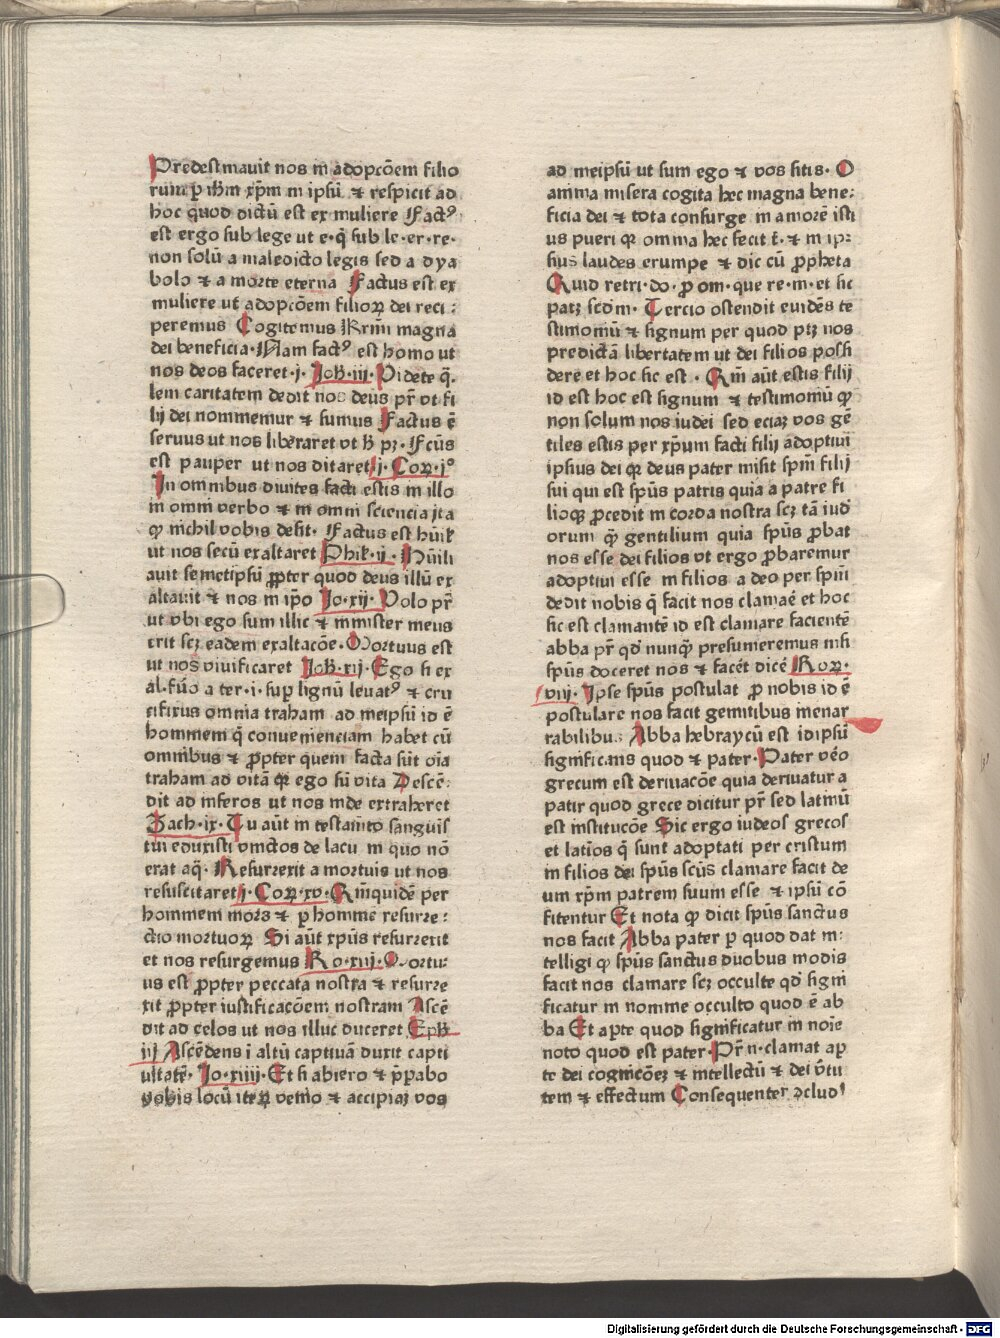 Predestinauit nos in adopcõem filio
rum ꝑ ihm xp̃m in ipsũ ⁊ respicit ad
hoc quod dictũ est ex muliere Factꝰ
est ergo sub lege ut e·q̃ sub le·er·re·
non solũ a maledicto legis sed a dya
bolo ⁊ a morte eterna Factus est ex
muliere ut adopcõem filioꝝ dei reci:
peremus Cogitemus Krm̃i magna
dei beneficia·Nam factꝰ est homo ut
nos deos faceret·j· Joh̃·iii· Videte q̃·
lem caritatem dedit nos deus pr̃ vt fi
lij dei nominemur ⁊ sumus Factus ẽ
seruus ut nos liberaret vt
est pauper ut nos ditaret ij·Coꝝ·j°
In omnibus diuites facti estis in illo
in omni verbo ⁊ in omni sciencia ita
ꝙ nichil vobis desit· Factus est hũil
ut nos secũ exaltaret Phil·ij· Hũili
auit semetipsũ ꝓpter quod deus illũ ex
altauit ⁊ nos in ip̃o Jo·xij· Volo pr̃
ut vbi ego sum illic ⁊ minister meus
erit scꝫ eadem exaltacõe·Mortuus est
ut nos viuificaret Joh̃·xij·Ego si ex
al·fũo a ter·i·sup lignũ leuatꝰ ⁊ cru
cifixus omnia traham ad meipsũ id ẽ
hominem q̃ conuenienciam habet cũ
omnibus ⁊ ꝓpter quem facta sũt oĩa
traham ad vitã qꝛ ego sũ vita Descẽ:
dit ad inferos ut nos inde extraheret
Zach·ix·Tu aũt in testam̃to sanguis
tui eduxisti vinctos de lacu in quo nõ
erat aq̃· Resurrexit a mortuis ut nos
resuscitaret j·Coꝝ·xv·Qm̃quidẽ per
hominem mors ⁊ ꝑ hominẽ resurre:
ctio mortuoꝝ Si aũt xp̃us resurrexit
et nos resurgemus Ro·xiij·Mortu:
us est ꝓpter peccata nostra ⁊ resurre
xit ꝓpter iustificacõem nostram Ascẽ
dit ad celos ut nos illuc duceret Eph̃
iij Ascẽdens ĩ altũ captiuã duxit capti
uitatẽ· Jo·xiiij·Et si abiero ⁊ p̃pabo
vobis locũ iteꝝ venio ⁊ accipiaꝫ vos
ad meipsũ ut sum ego ⁊ vos sitis· O
anima misera cogita hec magna bene:
ficia dei ⁊ tota consurge in amorẽ isti
us pueri qꝛ omnia hec fecit t̃· ⁊ in ip:
sius laudes erumpe ⁊ dic cũ ꝓpheta
Quid retri·do·ꝓ om·que re·m·et sic
patꝫ scd̃m· Tercio ostendit euidẽs te
stimoniũ ⁊ signum per quod ptꝫ nos
predictã libertatem ut dei filios possi
dere et hoc sic est · Qm̃ aũt estis filij
id est hoc est signum ⁊ testimoniũ ꝙ
non solum nos iudei sed eciaꝫ vos gẽ
tiles estis per xp̃um facti filij adoptiui
ipsius dei qꝛ deus pater misit sp̃m filij
sui qui est sp̃us patris quia a patre fi
lioqꝫ ꝓcedit in corda nostra scꝫ tã iud
orum ꝙ̃ gentilium quia sp̃us ꝓbat
nos esse dei filios vt ergo ꝓbaremur
adoptiui esse in filios a deo per sp̃m
dedit nobis q̃ facit nos clamaẽ et hoc
sic est clamantẽ id est clamare facientẽ
abba pr̃ qd̃ nunq̃ presumeremus nisi
sp̃us doceret nos ⁊ facẽt dicẽ Roꝝ·
viij· Ipse sp̃us postulat ꝓ nobis id ẽ
postulare nos facit gemitibus inenar
rabilibus Abba hebraycũ est idipsũ
significans quod ⁊ pater·Pater vẽo
grecum est deriuacõe quia deriuatur a
patir quod grece dicitur pr̃ sed latinũ
est institucõe Sic ergo iudeos grecos
et latĩos q̃ sunt adoptati per cristum
in filios dei sp̃us scũs clamare facit de
um xp̃m patrem suum esse ⁊ ipsũ cõ
fitentur Et nota ꝙ dicit sp̃us sanctus
nos facit Abba pater ꝑ quod dat in:
telligi ꝙ sp̃us sanctus duobus modis
facit nos clamare scꝫ occulte qd̃ signi
ficatur in nomine occulto quod ẽ ab
ba Et aꝑte quod significatur in noĩe
noto quod est pater·Pr̃ n·clamat aꝑ
te dei cognicõeꝫ ⁊ intellectũ ⁊ dei v̾tu
tem ⁊ effectum Consequenter ꝯclud'
Digitalisierung gefördert durch die Deutsche Forschungsgemeinschaft · DFG